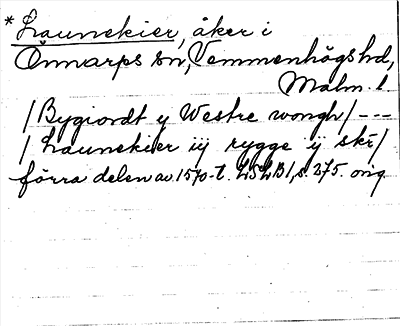 * Launekier, åker i
Önnarps sn, Vemmenhögs hd,
Malm. l
/Bygiordt y Westre wongh/ ---
/ Launekier iij rygge ij skr/
förra delen av 1570-t. LSLB1, s. 275. orig